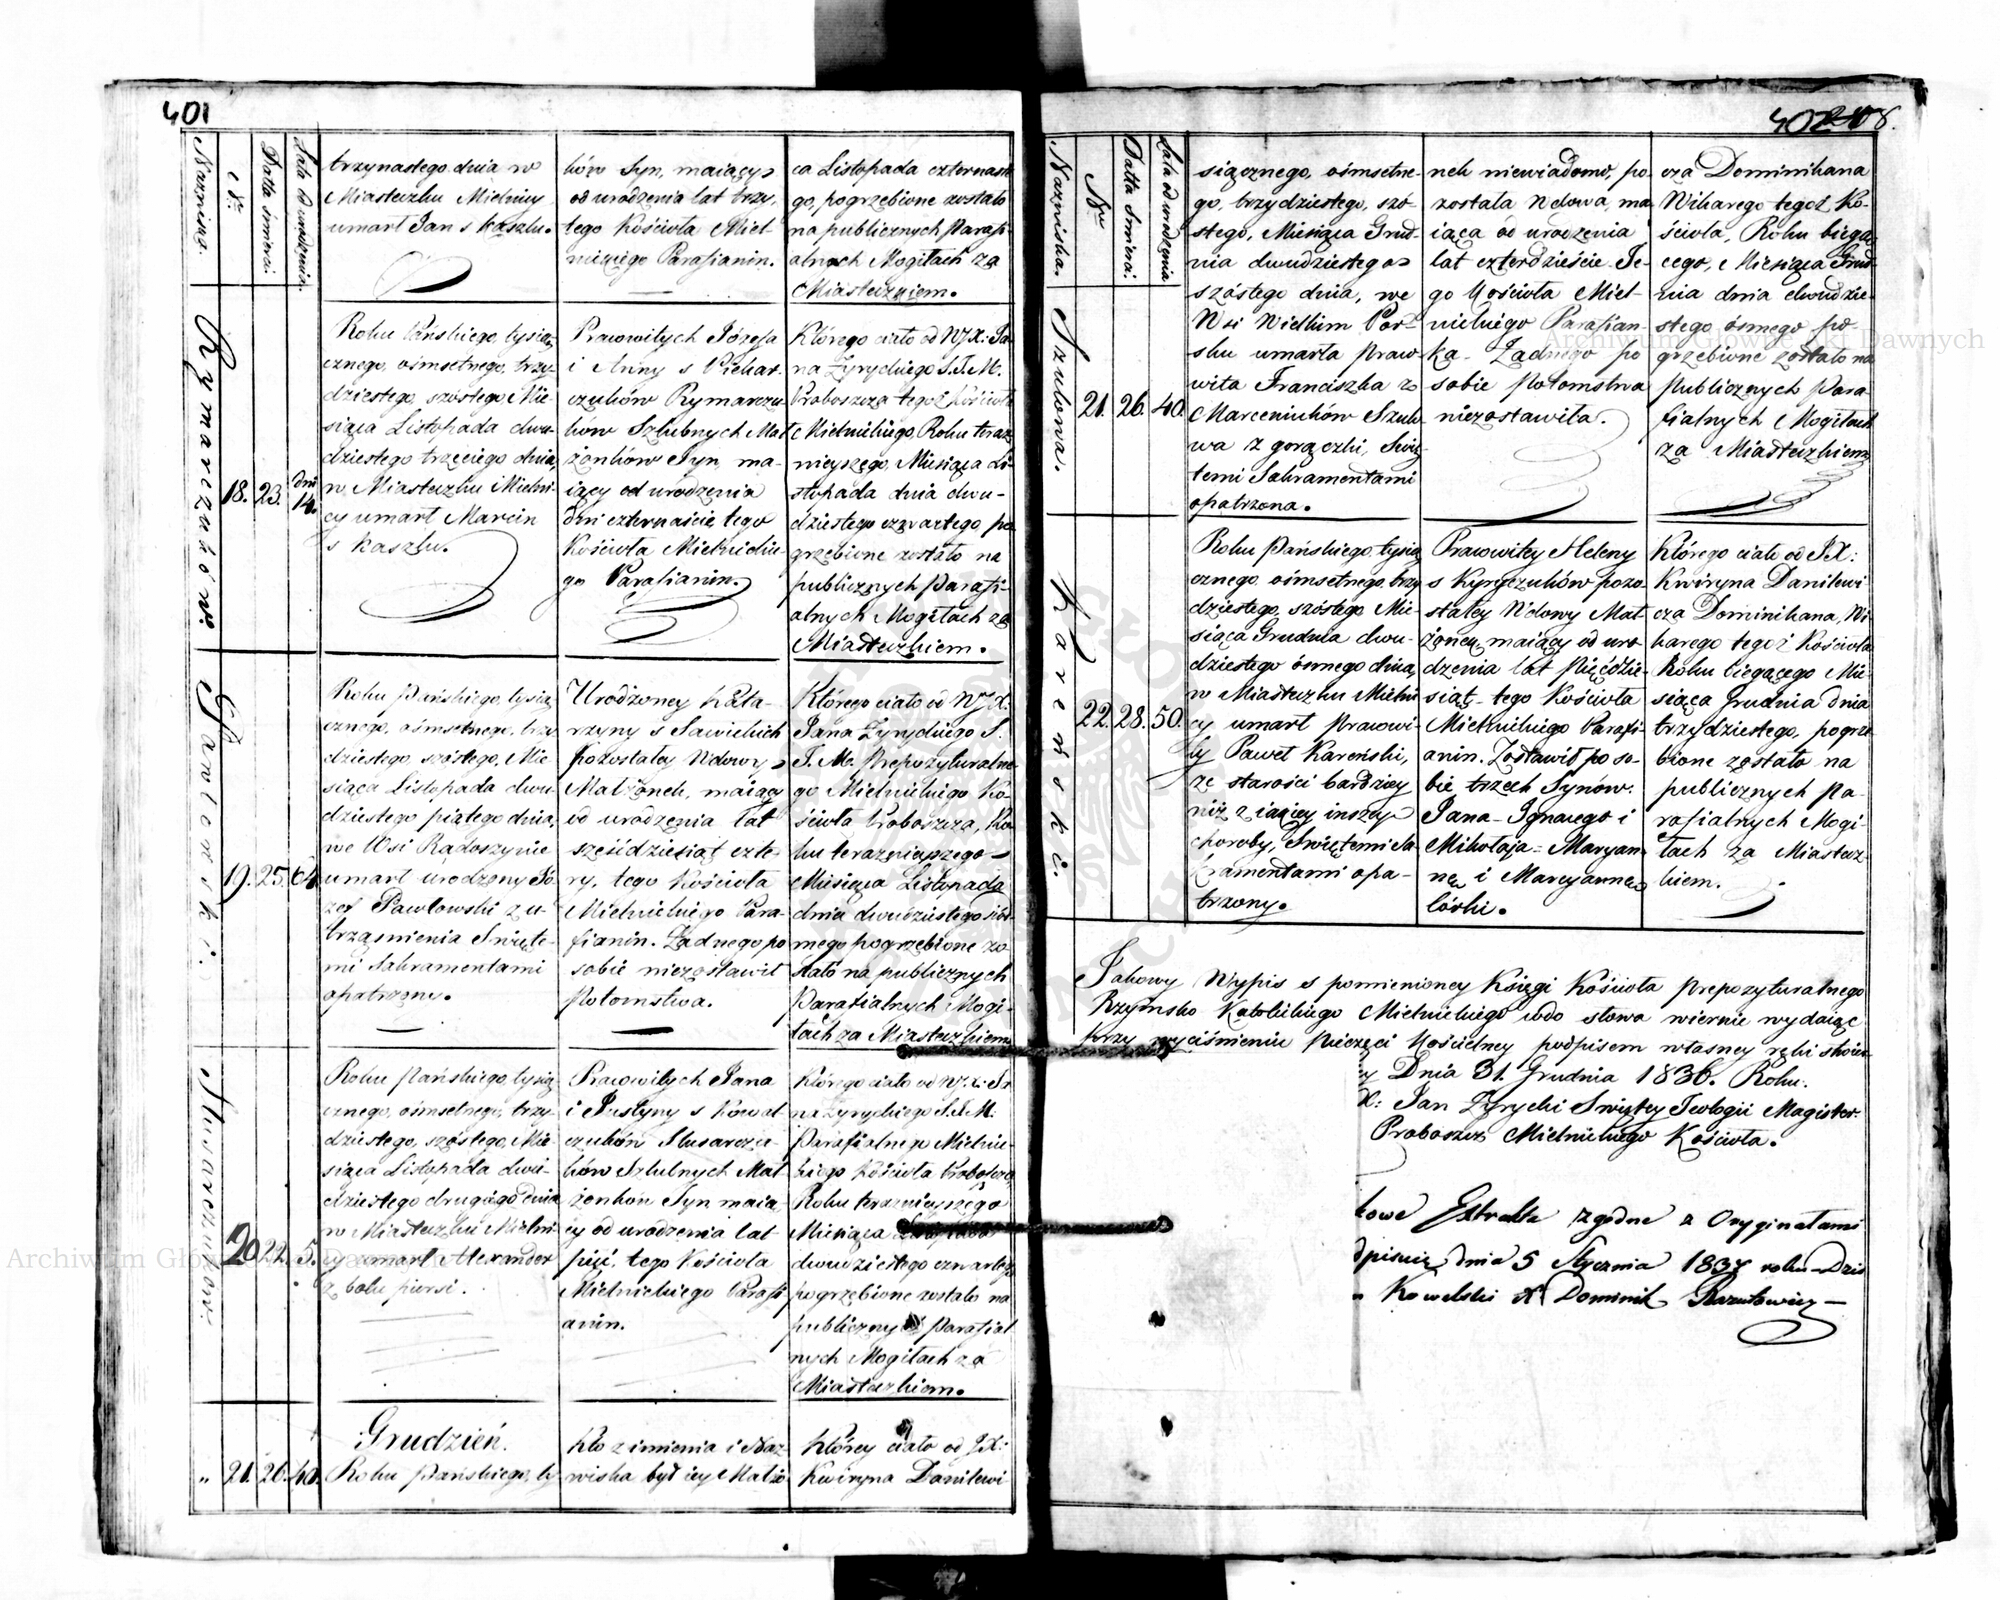 401
Nazwisko.
Nr
Datta śmierci.
Lata od urodzenia.
trzynastego dnia w
Miasteczku Mielnicy
umarł Jan s kaszlu.
ków Syn, maiący
od urodzenia lat trzy,
tego Kościoła Miel-
nickiego Parafianin.
ca Listopada czternaste
go, pogrzebione zostało
na publicznych Parafi-
alnych Mogiłach za
Miasteczkiem.
Rymarczuków.
18.
23.
dni
14.
Roku Pańskiego, tysią
cznego, ośmsetnego, trzy-
dziestego, szóstego, Mie-
siąca Listopada dwu-
dziestego trzeciego dnia,
w Miasteczku Mielni-
cy umarł Marcin
s kaszlu.
Prawowitych Józefa
i Anny s Piekar-
czuków Rymarczu
ków Szlubnych Mał
żonków Syn, ma-
iący od urodzenia
dni czternaście tego
Kościoła Mielnickie-
go Parafianin.
Którego ciało od WJX: Ja
na Żyryckiego S.T.M.
Proboszcza tegoż Kościoła
Mielnickiego, Roku teraz
nieyszego, Miesiąca Li-
stopada dnia dwu-
dziestego czwartego po
grzebione zostało na
publicznych Parafi-
alnych Mogiłach za
Miasteczkiem.
Pawłowski.
19.
25.
64.
Roku Pańskiego, tysią
cznego, ośmsetnego, trzy
dziestego, szóstego, Mie-
siąca Listopada dwu-
dziestego piątego dnia,
we Wsi Radoszynie
umarł urodzony Jó
zef Pawłowski z u-
trząśnienia Święte-
mi Sakramentami
opatrzony.
Urodzoney Kata-
rzyny s Sawickich
pozostałey Wdowy
Małżonek, maiący
od urodzenia lat
sześćdziesiąt czte-
ry, tego Kościoła
Mielnickiego Para-
fianin. Żadnego po
sobie niezostawił
Potomstwa.
Którego ciało od WJX:
Jana Żyryckiego S.
T. M. Prepozyturalne-
go Mielnickiego Ko-
ścioła Proboszcza, Ro
ku teraznieyszego
Miesiąca Listopada
dnia dwudziestego siód-
mego pogrzebione zo-
stało na publicznych
Parafialnych Mogi-
łach za Miasteczkiem
Slusarczuków.
20
22.
5.
Roku Pańskiego, tysią
cznego, ośmsetnego, trzy-
dziestego, szóstego, Mie-
siąca Listopada dwu-
dziestego drugiego dnia
w Miasteczku Mielni-
cy umarł Alexander
z bolu piersi.
Prawowitych Jana
i Justyny s Kowal
czuków Slusarczu-
ków Szlubnych Mał
żonków Syn maią
cy od urodzenia lat
pięć, tego Kościoła
Mielnickiego Parafi
anin.
Którego ciało od WJX: Ja
na Żyryckiego S.T.M:
Parafialnego Mielnic-
kiego Kościoła Proboszcza,
Roku teraznieyszego
Miesiąca Listopada
dwudziestego czwartego
pogrzebione zostało na
publicznych Parafial
nych Mogiłach za
Miasteczkiem.
Grudzień.
"
21.
26.
40.
Roku Pańskiego, ty
Kto z imienia i Naz-
wiska był iey Małżo
Którey ciało od JX:
Kwiryna Danilewi
402
Nazwiska.
Nr
Datta śmierci.
Lata od urodzenia
Szulowa.
21.
26.
40.
siącznego, ośmsetne-
go, trzydziestego, szó-
stego, Miesiąca Grud-
nia dwudziestego
szóstego dnia, we
Wsi Wielkim Por-
sku umarła praw
wita Franciszka z
Marceniuków Szulo
wa z gorączki, Świę-
temi Sakramentami
opatrzona.
nek niewiadomo, po-
została Wdowa, ma-
iąca od urodzenia
lat czterdzieście. Te-
go Kościoła Miel-
nickiego Parafian-
ka. Żadnego po
sobie Potomstwa
niezostawiła.
cza Dominikana
Wikarego tegoż Ko-
ścioła, Roku bieżą-
cego, Miesiąca Grud-
nia dnia dwudzie-
stego ósmego po-
grzebione zostało na
publicznych Para-
fialnych Mogiłach
za Miasteczkiem
Kareński.
22.
28.
50.
Roku Pańskiego, tysią
cznego, ośmsetnego, trzy
dziestego, szóstego Mie-
siąca Grudnia dwu-
dziestego ósmego dnia,
w Miasteczku Mielni
cy umarł prawowi-
ty Paweł Kareński,
ze starości bardziey
niż z iakiey inszey
choroby, Świętemi Sa-
kramentami opa-
trzony.
Prawowitey Heleny
s Kyryczuków pozo-
stałey Wdowy Mał-
żonek, maiący od uro-
dzenia lat pięćdzie-
siąt tego Kościoła
Mielnickiego Parafi-
anin. Zostawił po so-
bie trzech Synów:
Jana Ignacego i
Mikołaja Maryan-
nę i Marcyannę
córki.
Którego ciało od JX:
Kwiryna Danilewi
cza Dominikana, Wi
karego tegoż Kościoła
Roku bieżącego Mie-
siąca Grudnia dnia
trzydziestego, pogrze-
bione zostało na
publicznych Pa-
rafialnych Mogi-
łach za Miastecz-
kiem.
Takowy Wypis s pomienioney Księgi Kościoła Prepozyturalnego
Rzymsko Katolickiego Mielnickiego co do słowa wiernie wydaiąc
przy wyciśnieniu Pieczęci Kościelney podpisem własney ręki stwier
Dnia 31. Grudnia 1836. Roku.
X: Jan Żyrycki Świętey Teologii Magister.
Proboszcz Mielnickiego Kościoła.
kowe Extrakta zgodne z Oryginałami
dpisuię dnia 5 Stycznia 1837 roku Dzie
Kowelski X Dominik
Archiwum Główne Akt Dawnych